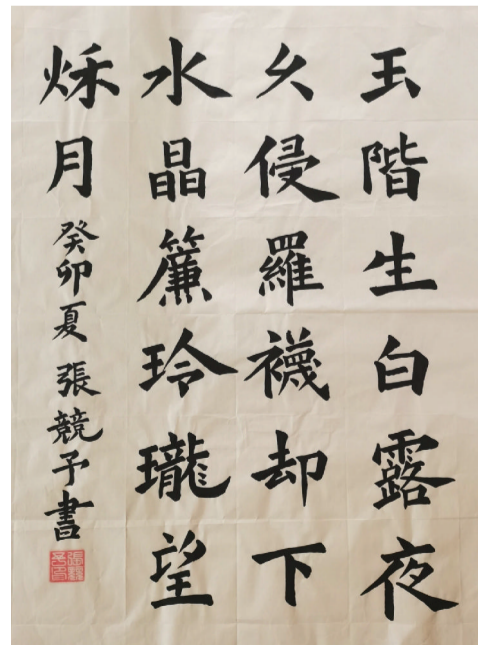 玉階生白露夜
久侵羅襪却下
水晶簾玲瓏望
烁月
癸卯夏張競予書